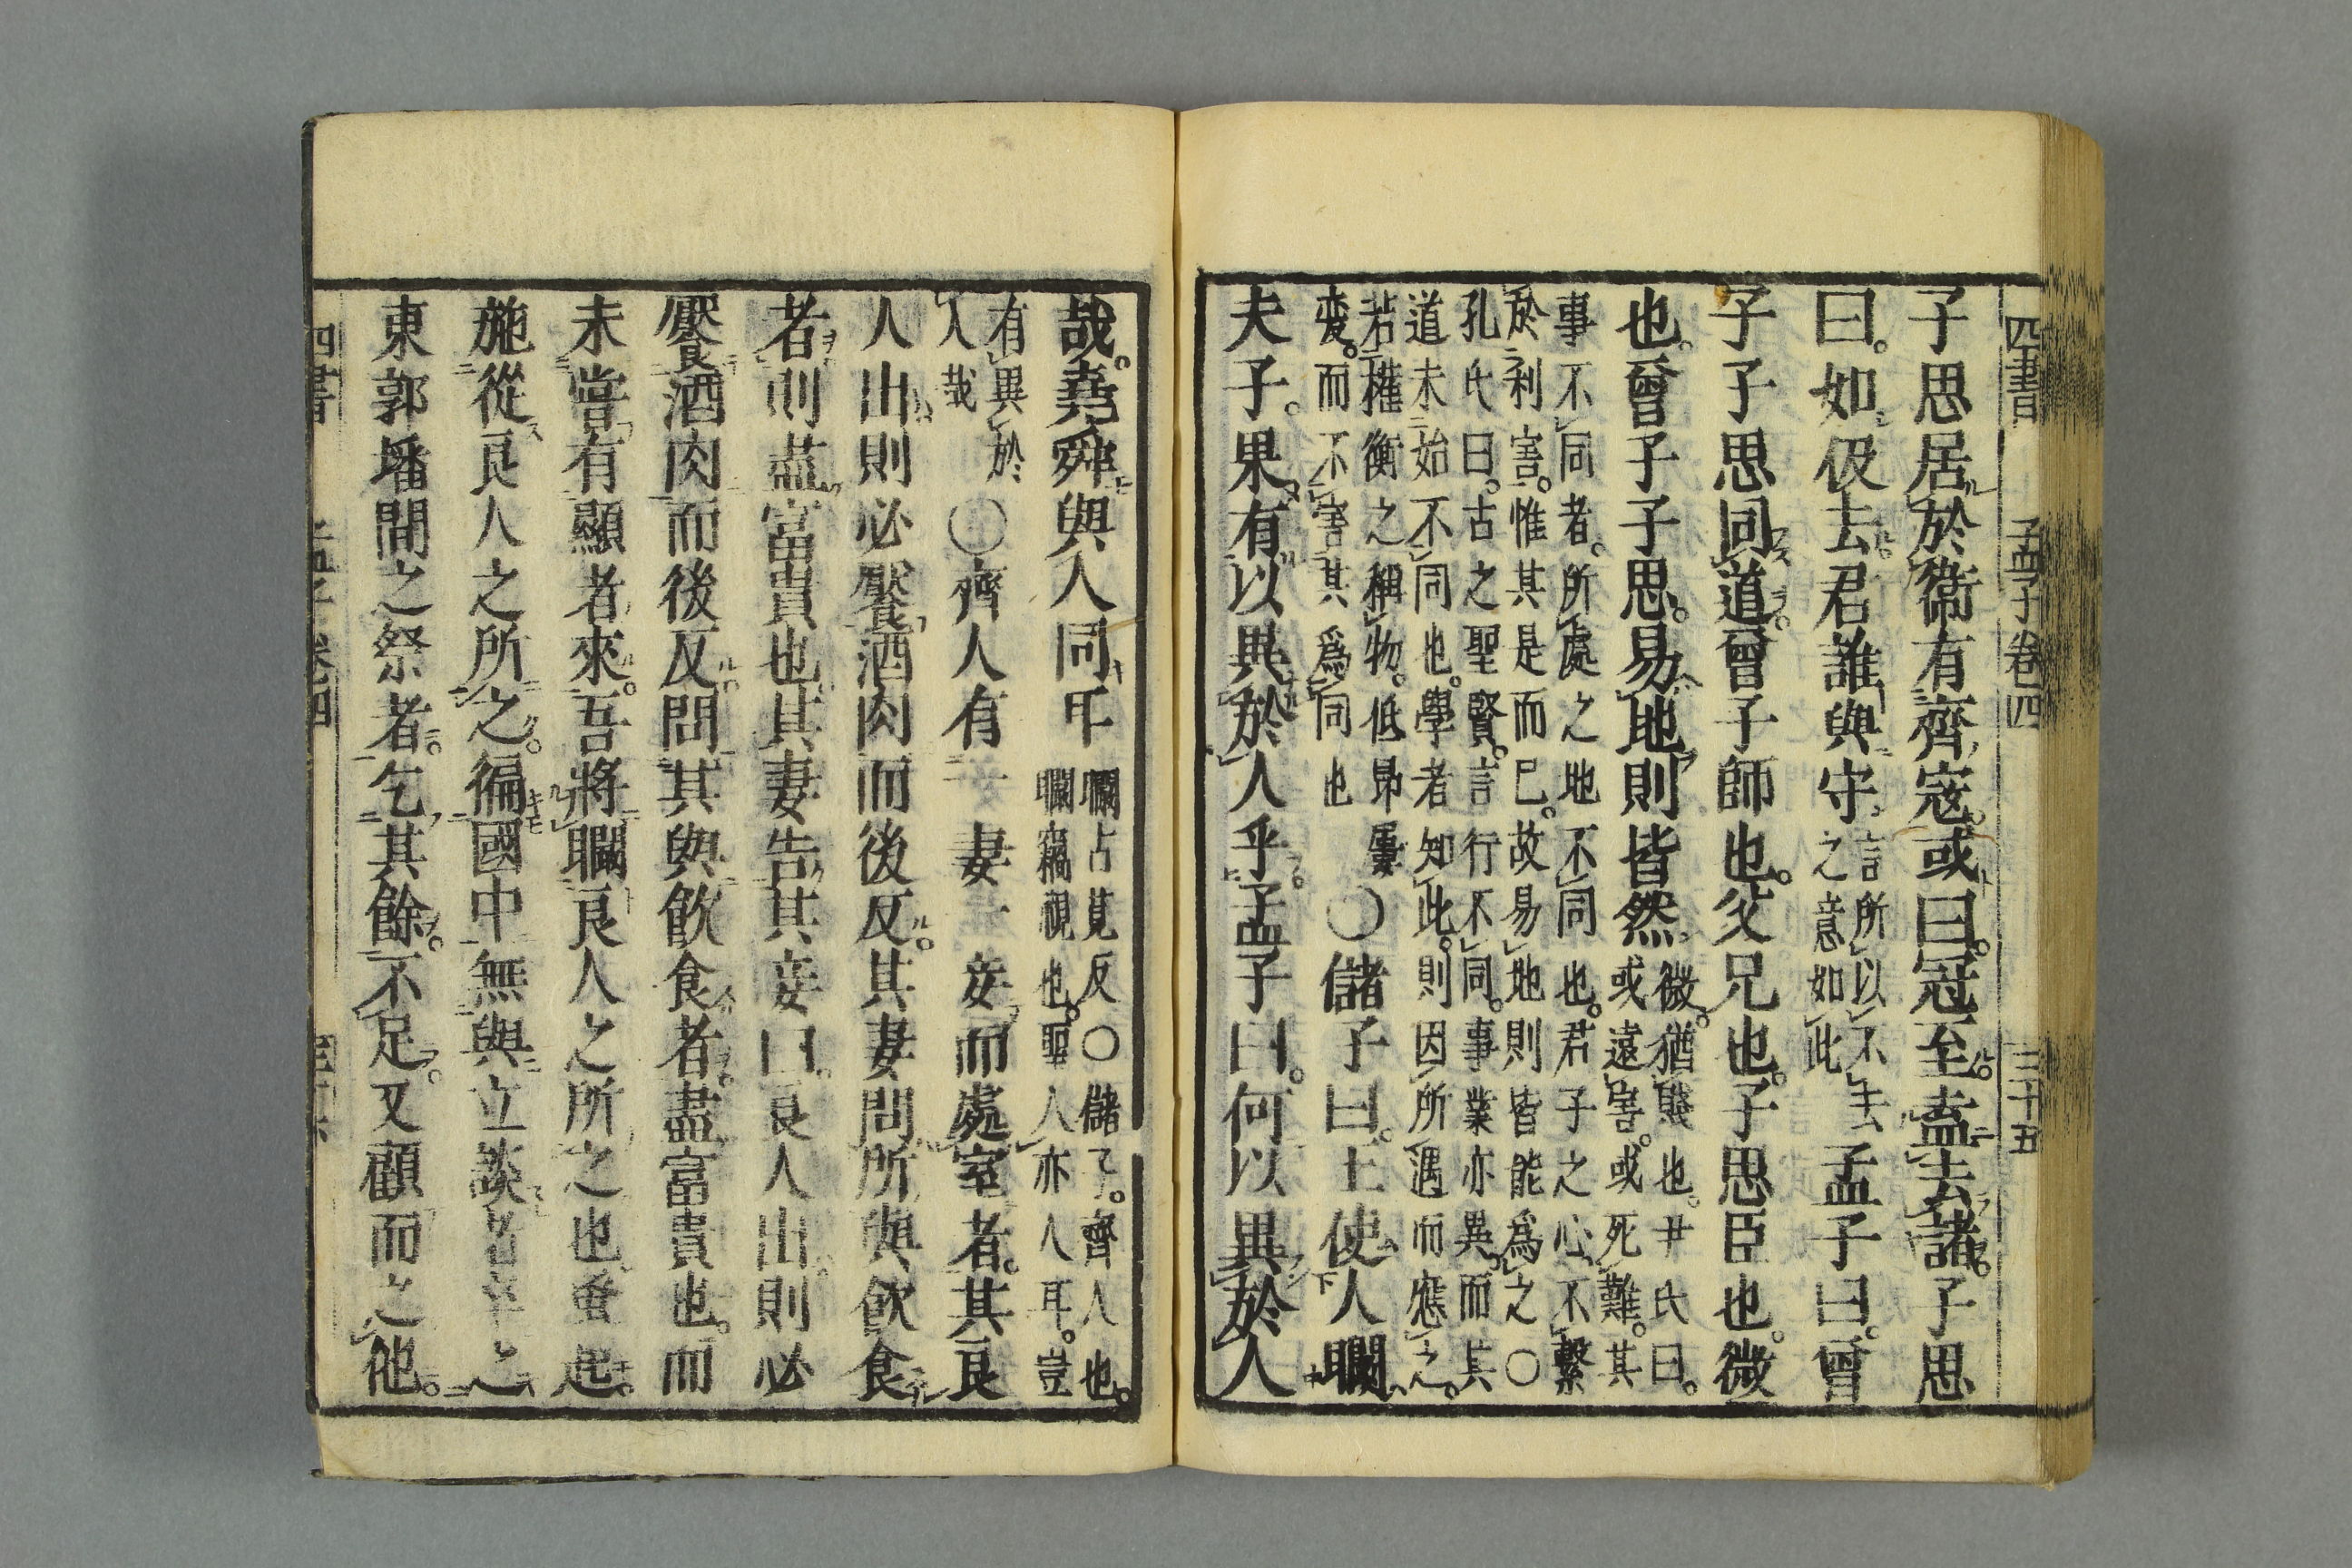 四書 孟子卷四 三十五
子思居於衞有齊寇。或曰。寇至。盍去諸。子思
曰。如伋去。君誰與守。
言所以不去
之意如此
孟子曰。曾
子子思同道。曾子師也。父兄也。子思臣也。微
也。曾子子思。易地則皆然
微。猶賤也。尹氏曰。
或遠害。或死難。其
事不同者。所處之地不同也。君子之心。不繫
於利害。惟其是而已。故易地則皆能爲之○
孔氏曰。古之聖賢。言行不同。事業亦異。而其
道未始不同也。學者知此。則因所遇而應之。
若權衡之稱物。低昻屢
變。而不害其爲同也
○儲子曰。王使人瞷
夫子。果有以異於人乎。孟子曰。何以異於人
哉。堯舜與人同耳
瞷古莧反○儲子。齊人也。
瞷竊視也。聖人亦人耳。豈
有異於
人哉
○齊人有一妻一妾而處室者。其良
人出則必饜酒肉而後反。其妻問所與飮食
者則盡富貴也其妻告其妾曰。良人出則必
饜酒肉而後反。問其與飮食者。盡富貴也。而
未嘗有顯者來。吾將瞷良人之所之也。蚤起。
施從良人之所之。徧國中無與立談者卒之
東郭墦間之祭者。乞其餘。不足。又顧而之他。
四書 孟子卷四